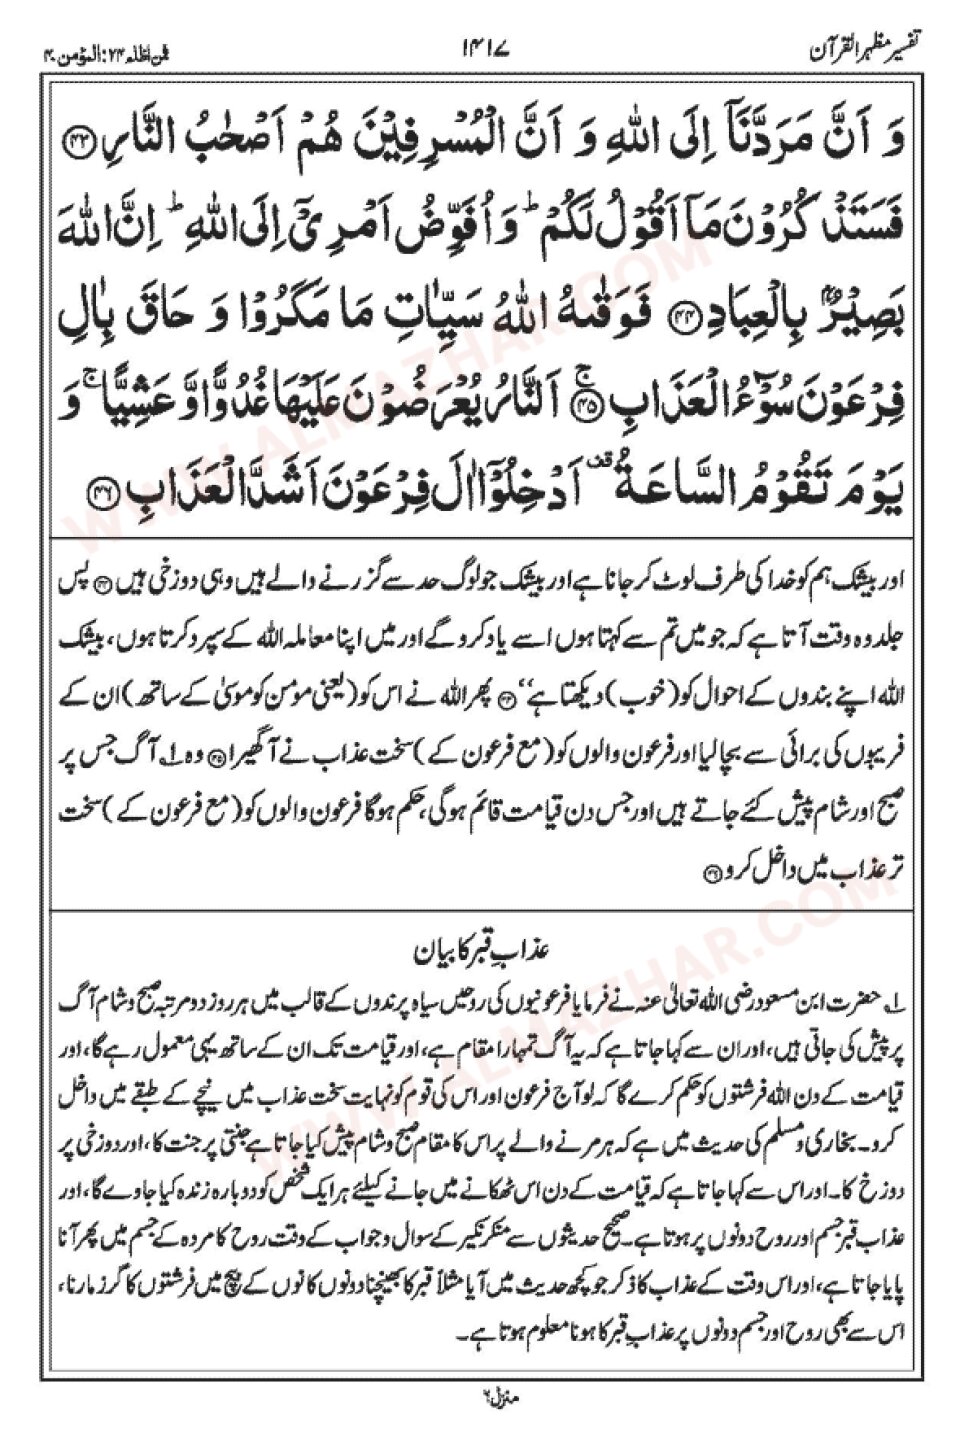 تفسیر مظہر القرآن
۱۴۱۷
فمن اظلم ۲۴: المؤمن ۴۰
وَ اَنَّ مَرَدَّنَاۤ اِلَی اللّٰهِ وَ اَنَّ الْمُسْرِفِیْنَ هُمْ اَصْحٰبُ النَّارِ ﴿۴۳﴾
فَسَتَذْكُرُوْنَ مَاۤ اَقُوْلُ لَكُمْ ؕ وَ اُفَوِّضُ اَمْرِیْۤ اِلَی اللّٰهِ ؕ اِنَّ اللّٰهَ
بَصِیْرٌۢ بِالْعِبَادِ ﴿۴۴﴾ فَوَقٰىهُ اللّٰهُ سَیِّاٰتِ مَا مَكَرُوْا وَ حَاقَ بِاٰلِ
فِرْعَوْنَ سُوْٓءُ الْعَذَابِ ﴿۴۵﴾ۚ اَلنَّارُ یُعْرَضُوْنَ عَلَیْهَا غُدُوًّا وَّ عَشِیًّا ۚ وَ
یَوْمَ تَقُوْمُ السَّاعَةُ ۟ اَدْخِلُوْۤا اٰلَ فِرْعَوْنَ اَشَدَّ الْعَذَابِ ﴿۴۶﴾
اور بیشک ہم کو خدا کی طرف لوٹ کر جانا ہے اور بیشک جو لوگ حد سے گزرنے والے ہیں وہی دوزخی ہیں ﴿۴۳﴾ پس
جلد وہ وقت آتا ہے کہ جو میں تم سے کہتا ہوں اسے یاد کرو گے اور میں اپنا معاملہ اللہ کے سپرد کرتا ہوں، بیشک
اللہ اپنے بندوں کے احوال کو (خوب) دیکھتا ہے‘‘ ﴿۴۴﴾ پھر اللہ نے اس کو (یعنی مومن کو موسیٰ کے ساتھ) ان کے
فریبوں کی برائی سے بچا لیا اور فرعون والوں کو (مع فرعون کے) سخت عذاب نے آ گھیرا ﴿۴۵﴾ وہ ۱؎ آگ جس پر
صبح اور شام پیش کئے جاتے ہیں اور جس دن قیامت قائم ہوگی، حکم ہوگا فرعون والوں کو (مع فرعون کے) سخت
تر عذاب میں داخل کرو ﴿۴۶﴾
عذابِ قبر کا بیان
۱؎ حضرت ابن مسعود رضی اللہ تعالیٰ عنہ نے فرمایا فرعونیوں کی روحیں سیاہ پرندوں کے قالب میں ہر روز دو مرتبہ صبح و شام آگ
پر پیش کی جاتی ہیں، اور ان سے کہا جاتا ہے کہ یہ آگ تمہارا مقام ہے، اور قیامت تک ان کے ساتھ یہی معمول رہے گا، اور
قیامت کے دن اللہ فرشتوں کو حکم کرے گا کہ لو آج فرعون اور اس کی قوم کو نہایت سخت عذاب میں نیچے کے طبقے میں داخل
کرو۔ بخاری و مسلم کی حدیث میں ہے کہ ہر مرنے والے پر اس کا مقام صبح و شام پیش کیا جاتا ہے جنتی پر جنت کا، اور دوزخی پر
دوزخ کا۔ اور اس سے کہا جاتا ہے کہ قیامت کے دن اس ٹھکانے میں جانے کیلئے ہر ایک شخص کو دوبارہ زندہ کیا جاوے گا، اور
عذاب قبر جسم اور روح دونوں پر ہوتا ہے۔ صحیح حدیثوں سے منکر نکیر کے سوال و جواب کے وقت روح کا مردہ کے جسم میں پھر آنا
پایا جاتا ہے، اور اس وقت کے عذاب کا ذکر جو کچھ حدیث میں آیا مثلاً قبر کا بھینچنا دونوں کانوں کے بیچ میں فرشتوں کا گرز مارنا،
اس سے بھی روح اور جسم دونوں پر عذاب قبر کا ہونا معلوم ہوتا ہے۔
منزل ۶
WWW.ALMAZHAR.COM
WWW.ALMAZHAR.COM